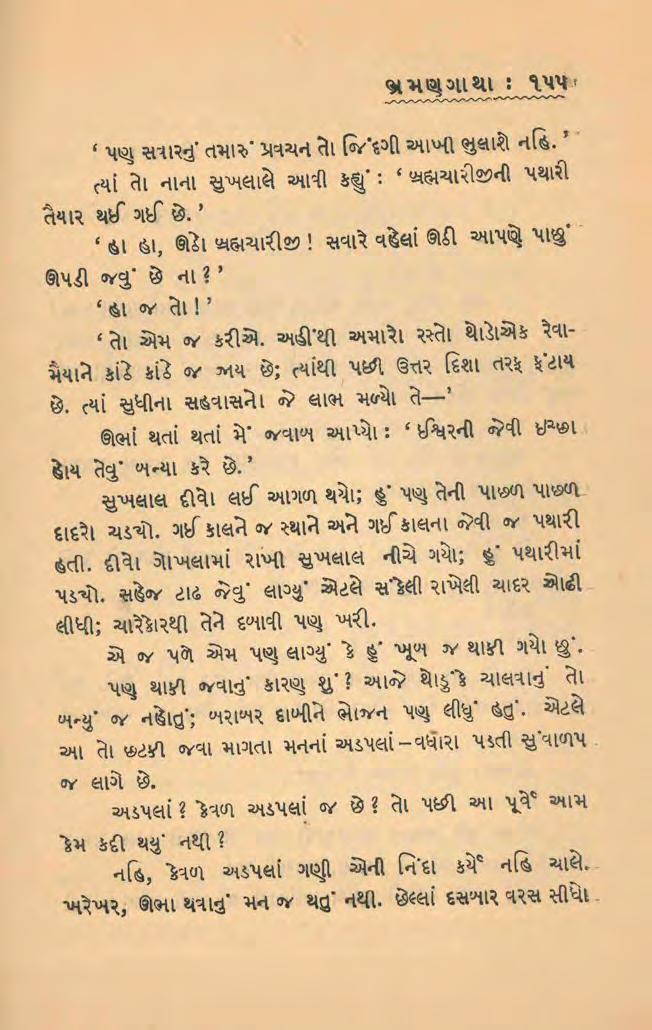 ભ્રમણગાથા : ૧૫૫
‘ પણ સવારનું તમારું પ્રવચન તો જિંદગી આખી ભુલાશે નહિ. ’
ત્યાં તો નાના સુખલાલે આવી કહ્યું : ‘ બ્રહ્મચારીજીની પથારી
તૈયાર થઈ ગઈ છે. ’
‘ હા હા, ઊઠો બ્રહ્મચારીજી ! સવારે વહેલાં ઊઠી આપણે પાછું
ઊપડી જવું છે ના ? ’
‘ હા જ તો ! ’
‘ તો એમ જ કરીએ. અહીંથી અમારો રસ્તો થોડોએક રેવા-
મૈયાને કાંઠે કાંઠે જ જાય છે; ત્યાંથી પછી ઉત્તર દિશા તરફ ફંટાય
છે. ત્યાં સુધીના સહવાસનો જે લાભ મળ્યો તે—’
ઊભાં થતાં થતાં મેં જવાબ આપ્યો : ‘ ઈશ્વરની જેવી ઇચ્છા
હોય તેવું બન્યા કરે છે. ’
સુખલાલ દીવો લઈ આગળ થયો; હું પણ તેની પાછળ પાછળ
દાદરો ચડ્યો. ગઈ કાલને જ સ્થાને અને ગઈ કાલના જેવી જ પથારી
હતી. દીવો ગોખલામાં રાખી સુખલાલ નીચે ગયો; હું પથારીમાં
પડ્યો. સહેજ ટાઢ જેવું લાગ્યું એટલે સંકેલી રાખેલી ચાદર ઓઢી
લીધી; ચારેકોરથી તેને દબાવી પણ ખરી.
એ જ પળે એમ પણ લાગ્યું કે હું ખૂબ જ થાકી ગયો છું.
પણ થાકી જવાનું કારણ શું ? આજે થોડુંકે ચાલવાનું તો
બન્યું જ નહોતું; બરાબર દાબીને ભોજન પણ લીધું હતું. એટલે
આ તો છટકી જવા માગતા મનનાં અડપલાં – વધારા પડતી સુંવાળપ
જ લાગે છે.
અડપલાં ? કેવળ અડપલાં જ છે ? તો પછી આ પૂર્વે આમ
કેમ કદી થયું નથી ?
નહિ, કેવળ અડપલાં ગણી એની નિંદા કર્યે નહિ ચાલે.
ખરેખર, ઊભા થવાનું મન જ થતું નથી. છેલ્લાં દસબાર વરસ સીધો